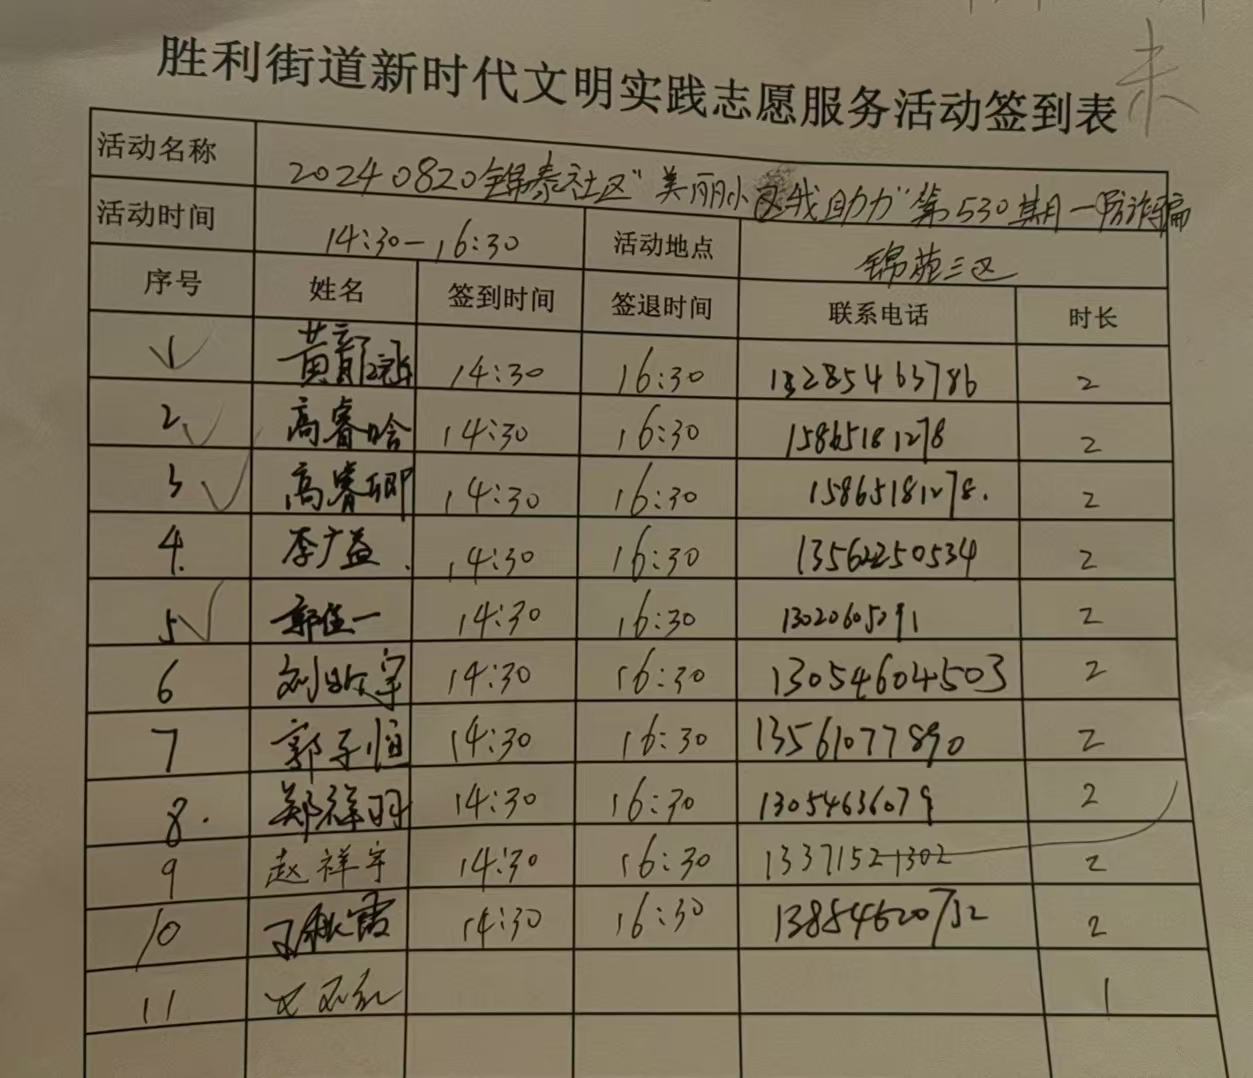 未
胜利街道新时代文明实践志愿服务活动签到表
活动名称 20240820锦泰社区"美丽小区我助力"第530期—防诈骗
活动时间 14:30—16:30 活动地点 锦苑三区
序号 姓名 签到时间 签退时间 联系电话 时长
1 黄 14:30 16:30 13285463786 2
2 高睿晗 14:30 16:30 15865181278 2
3 高睿卿 14:30 16:30 15865181278. 2
4. 李广益. 14:30 16:30 13562250534 2
5 郭佳一 14:30 16:30 13020605291 2
6 刘 宇 14:30 16:30 13054604503 2
7 郭子恒 14:30 16:30 13561077890 2
8. 郑祥羽 14:30 16:30 13054636079 2
9 赵祥宇 14:30 16:30 13371521302 2
10 王秋霞 14:30 16:30 13854620752 2
11 1